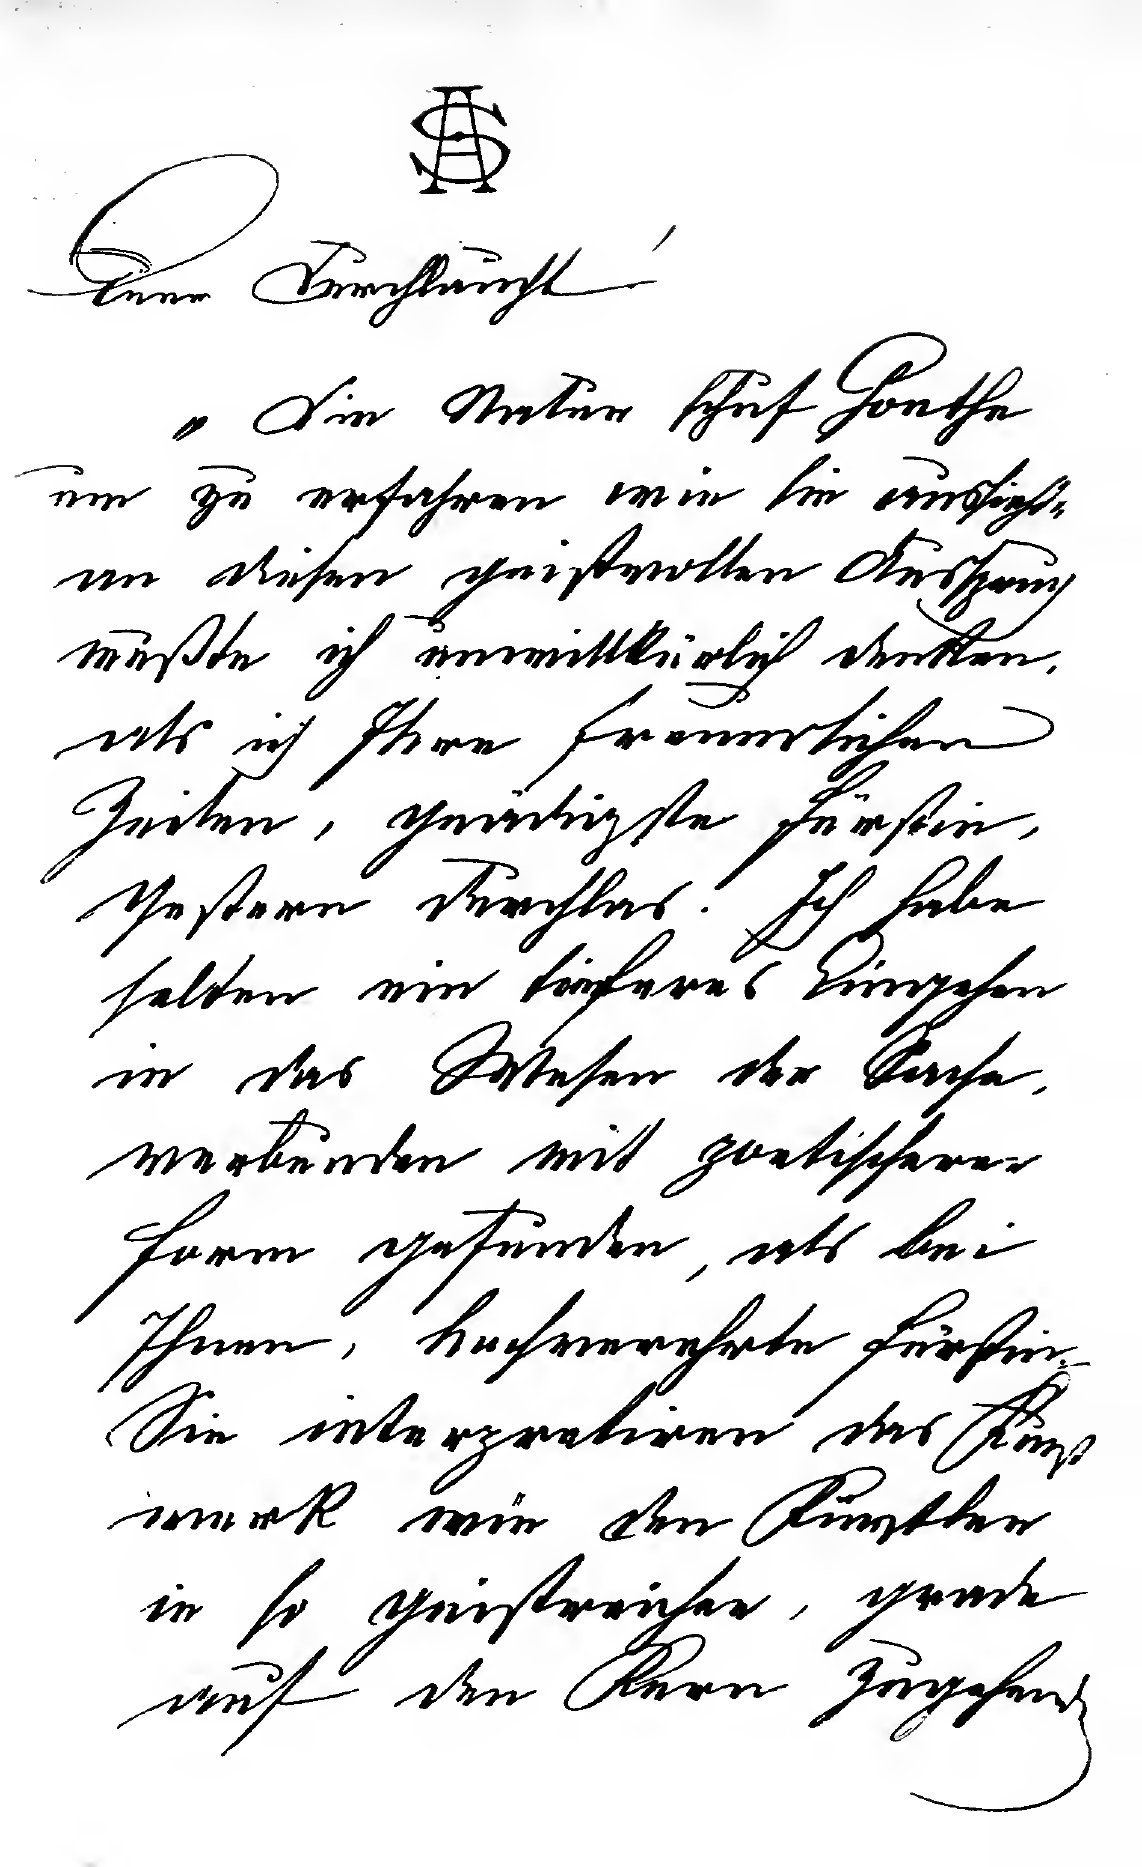 AS
Euer Durchlaucht!
„Die Natur schuf Goethe
um zu erfahren wie sie aussieht"
an diesen geistvollen Ausspruch
mußte ich unwillkürlich denken,
als ich Ihre freundlichen
Zeilen, gnädigste Fürstin,
gestern durchlas. Ich habe
selten ein tieferes Eingehen
in das Wesen der Sache,
verbunden mit poetischerer
Form gefunden, als bei
Ihnen, hochverehrte Fürstin.
Sie interpretiren das Kunst
werk wie den Künstler
in so geistreicher, grade
auf den Kern zugehend